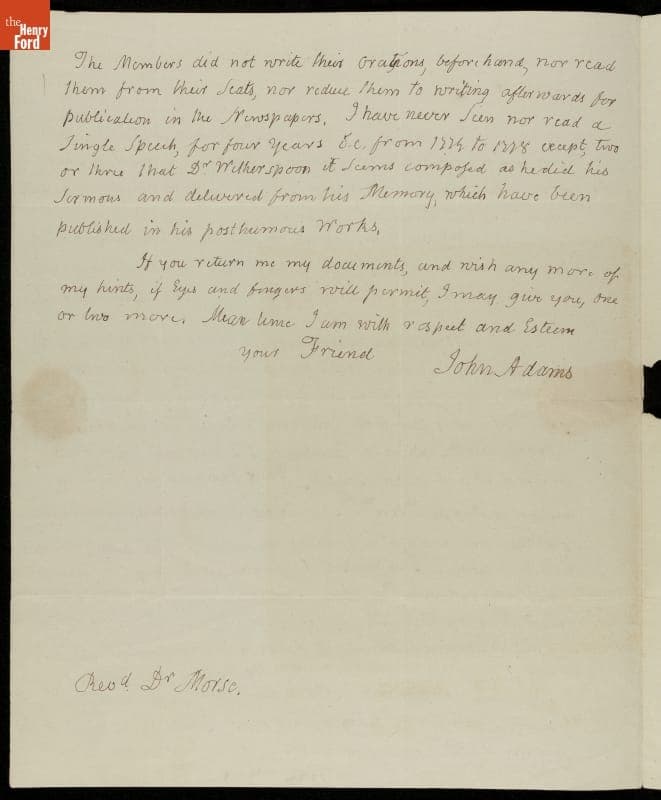 the
Henry
Ford
The Members did not write their orations, beforehand, nor read
them from their Seats, nor reduce them to writing afterwards for
publication in the Newspapers. I have never seen nor read a
Single Speech, for four years &c. from 1774 to 1778 except, two
or three that Dr Witherspoon it seems composed as he did his
Sermons and delivered from his Memory, which have been
published in his posthumous Works.
If you return me my documents, and wish any more of
my hints, if Eyes and fingers will permit, I may give you, one
or two more. Mean time I am with respect and Esteem
your Friend
John Adams
Revd. Dr Morse.